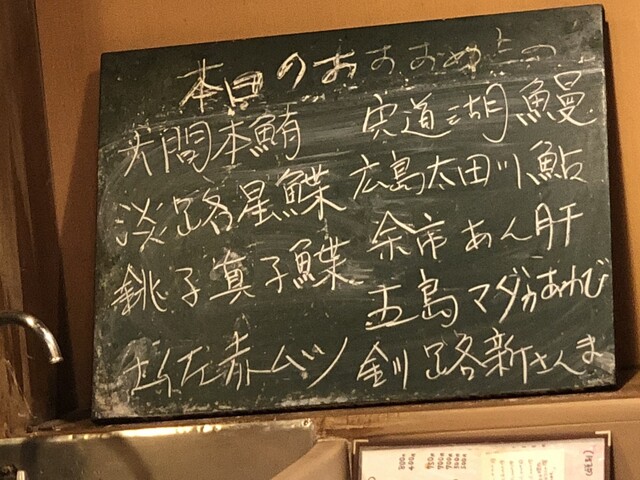 本日のおすすめ
大間本鮪
淡路星鰈
銚子真子鰈
土佐赤ムツ
宍道湖鰻
広島太田川鮎
余市あん肝
五島マダカあわび
釧路新さんま